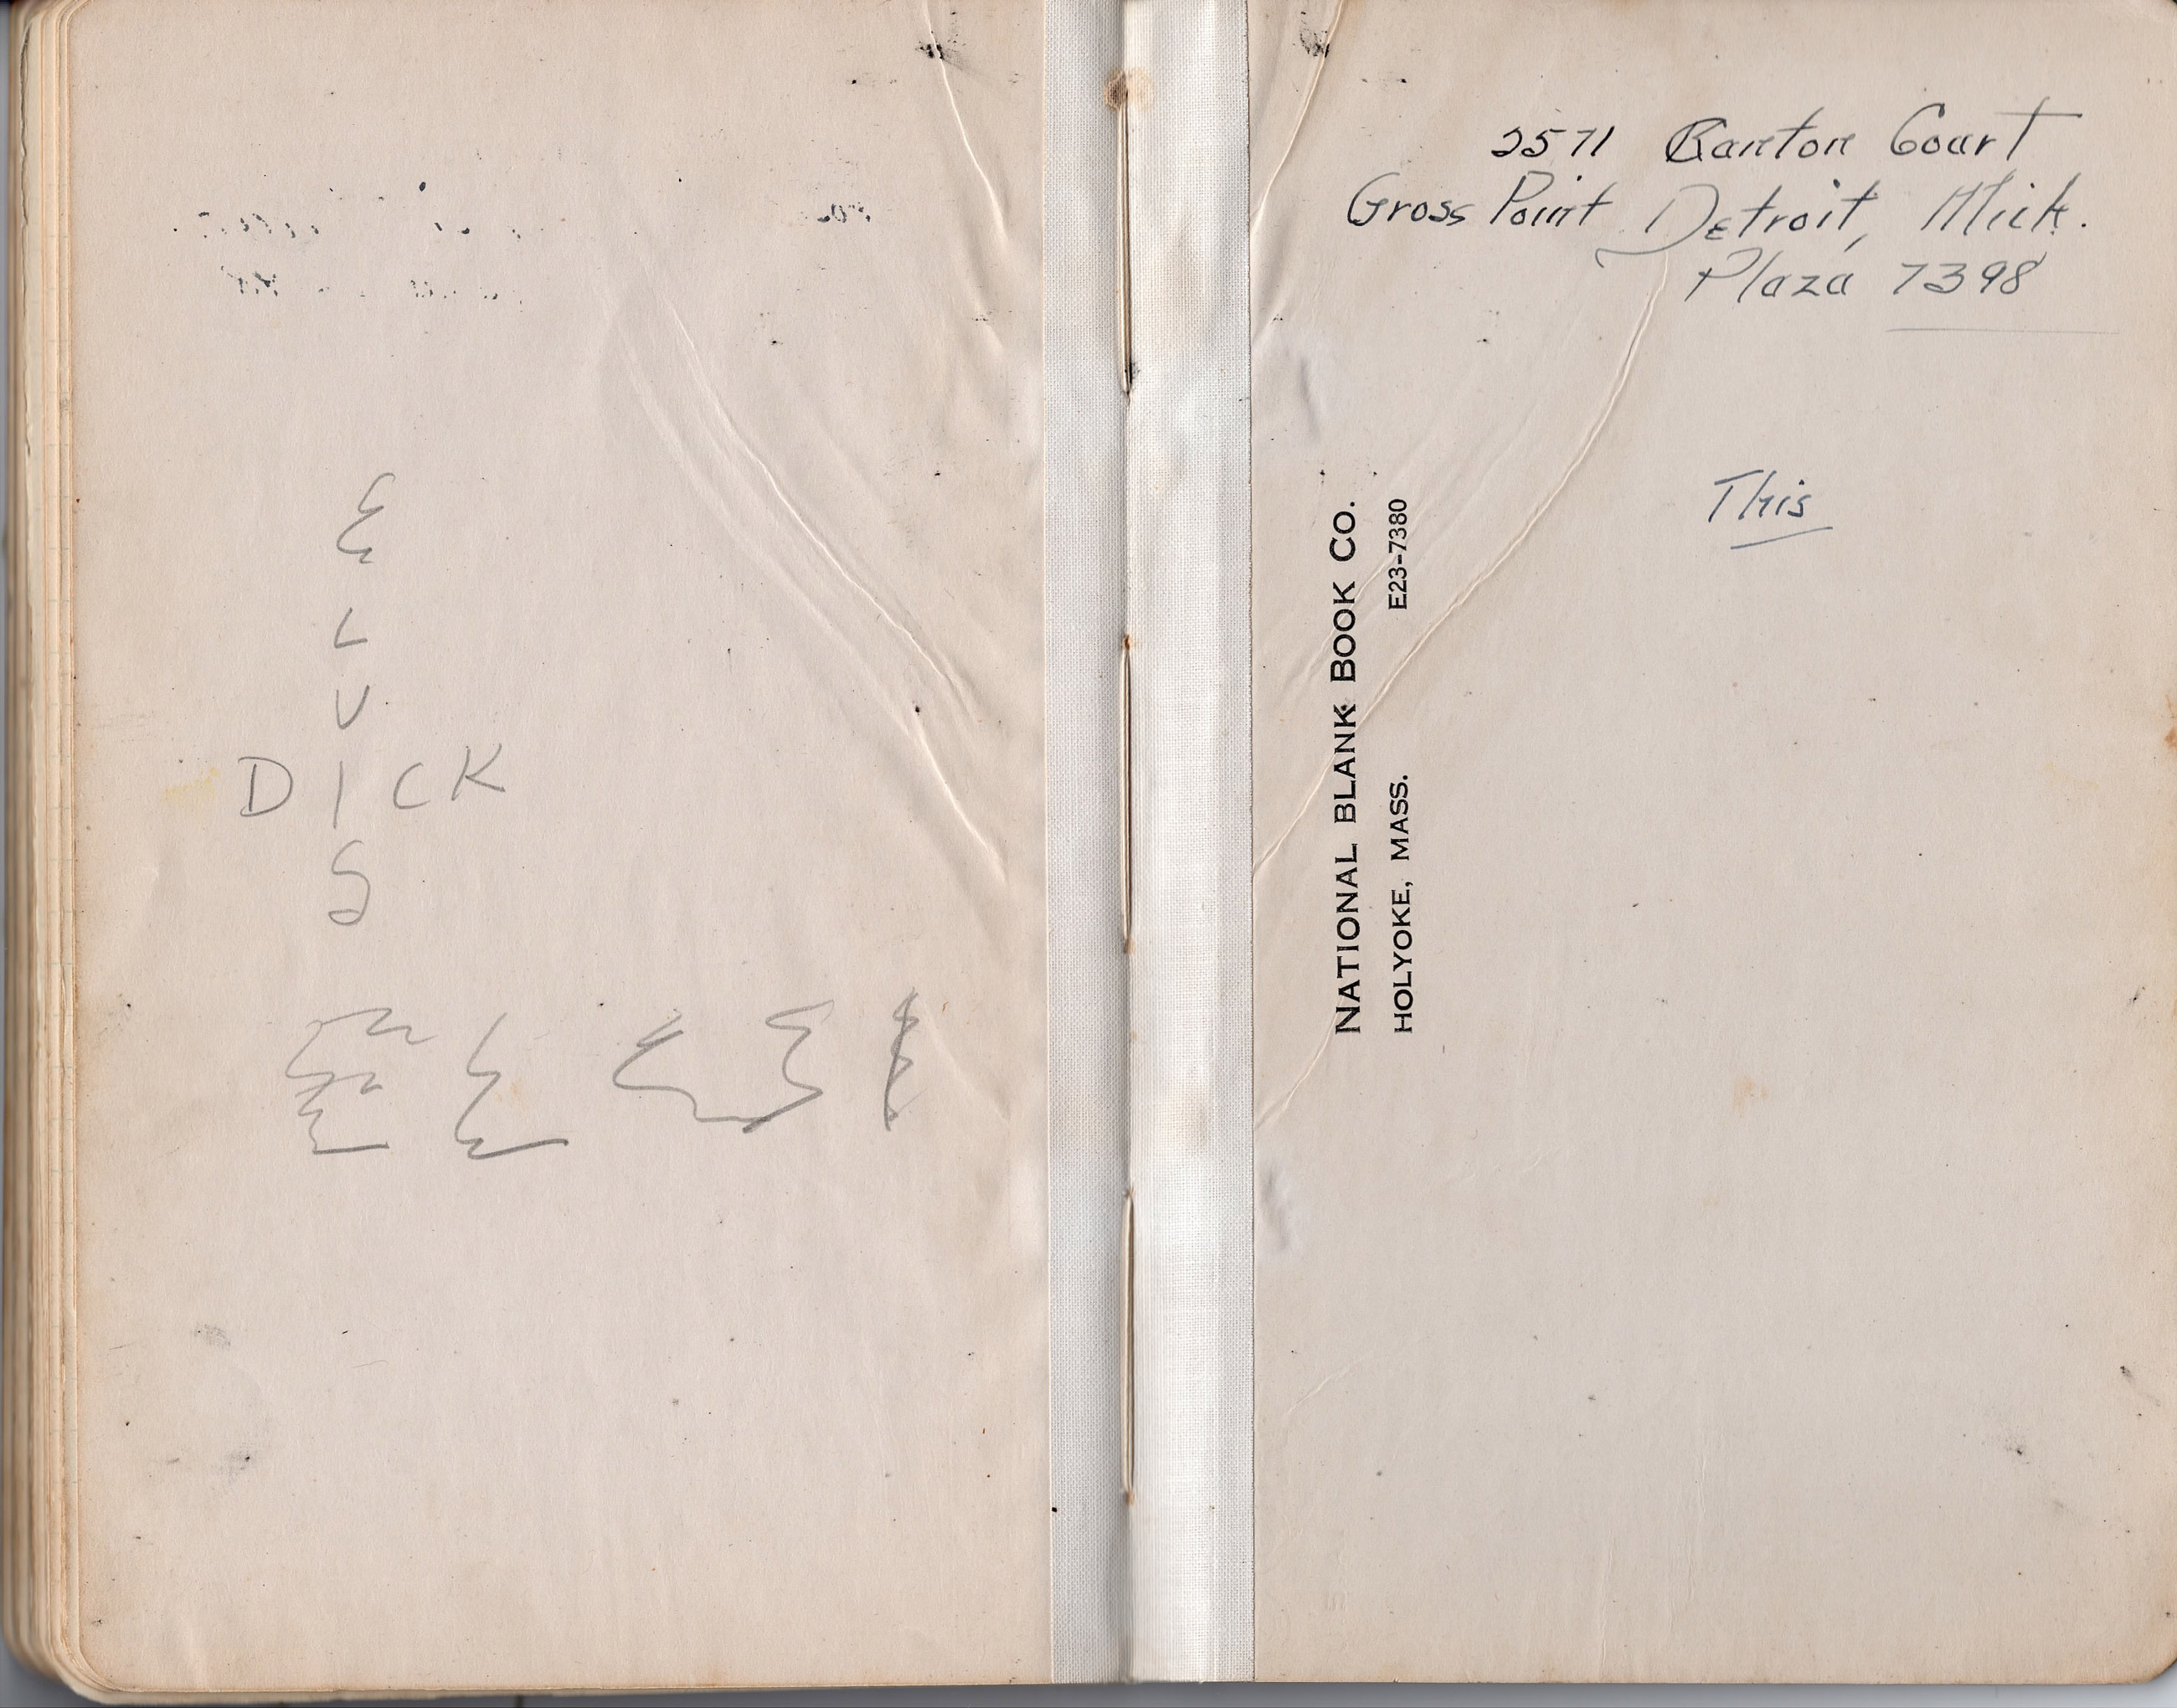 E
L
V
DICK
S
2571 Banton Court
Gross Point Detroit, Mich.
Plaza 7398
This
NATIONAL BLANK BOOK CO.
HOLYOKE, MASS. E23-7380